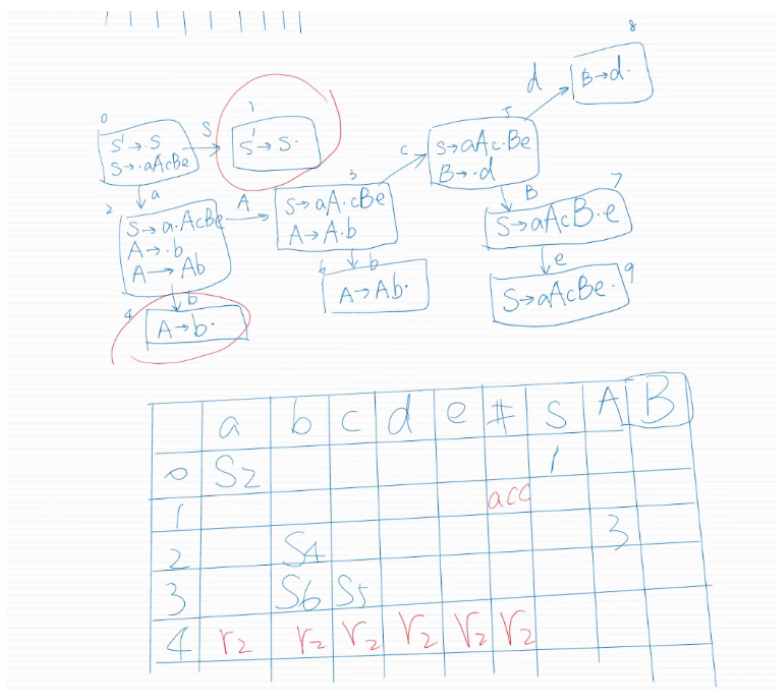 0
S' → S
S → ·aAcBe
S
1
S' → S·
a
2
S → a·AcBe
A → ·b
A → Ab
A
3
S → aA·cBe
A → A·b
c
5
S → aAc·Be
B → ·d
d
8
B → d·
B
7
S → aAcB·e
e
S → aAcBe·
9
b
A → Ab·
b
4
A → b·
a b c d e # S A B
0 S2 1
1 acc
2 S4 3
3 S6 S5
4 r2 r2 r2 r2 r2 r2